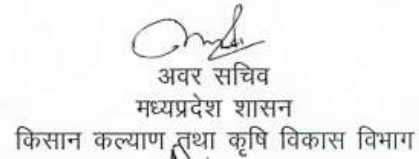 अवर सचिव
मध्यप्रदेश शासन
किसान कल्याण तथा कृषि विकास विभाग